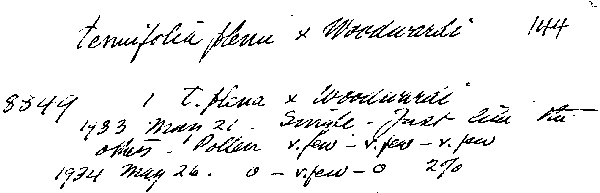 tenuifolia plena x Woodwardi 144
8349 1 t. plena x Woodwardi
1933 May 21 - Single - Just like the
others - Pollen v.few - v.few - v.few
1934 May 26. 0 - v.few - 0 2%